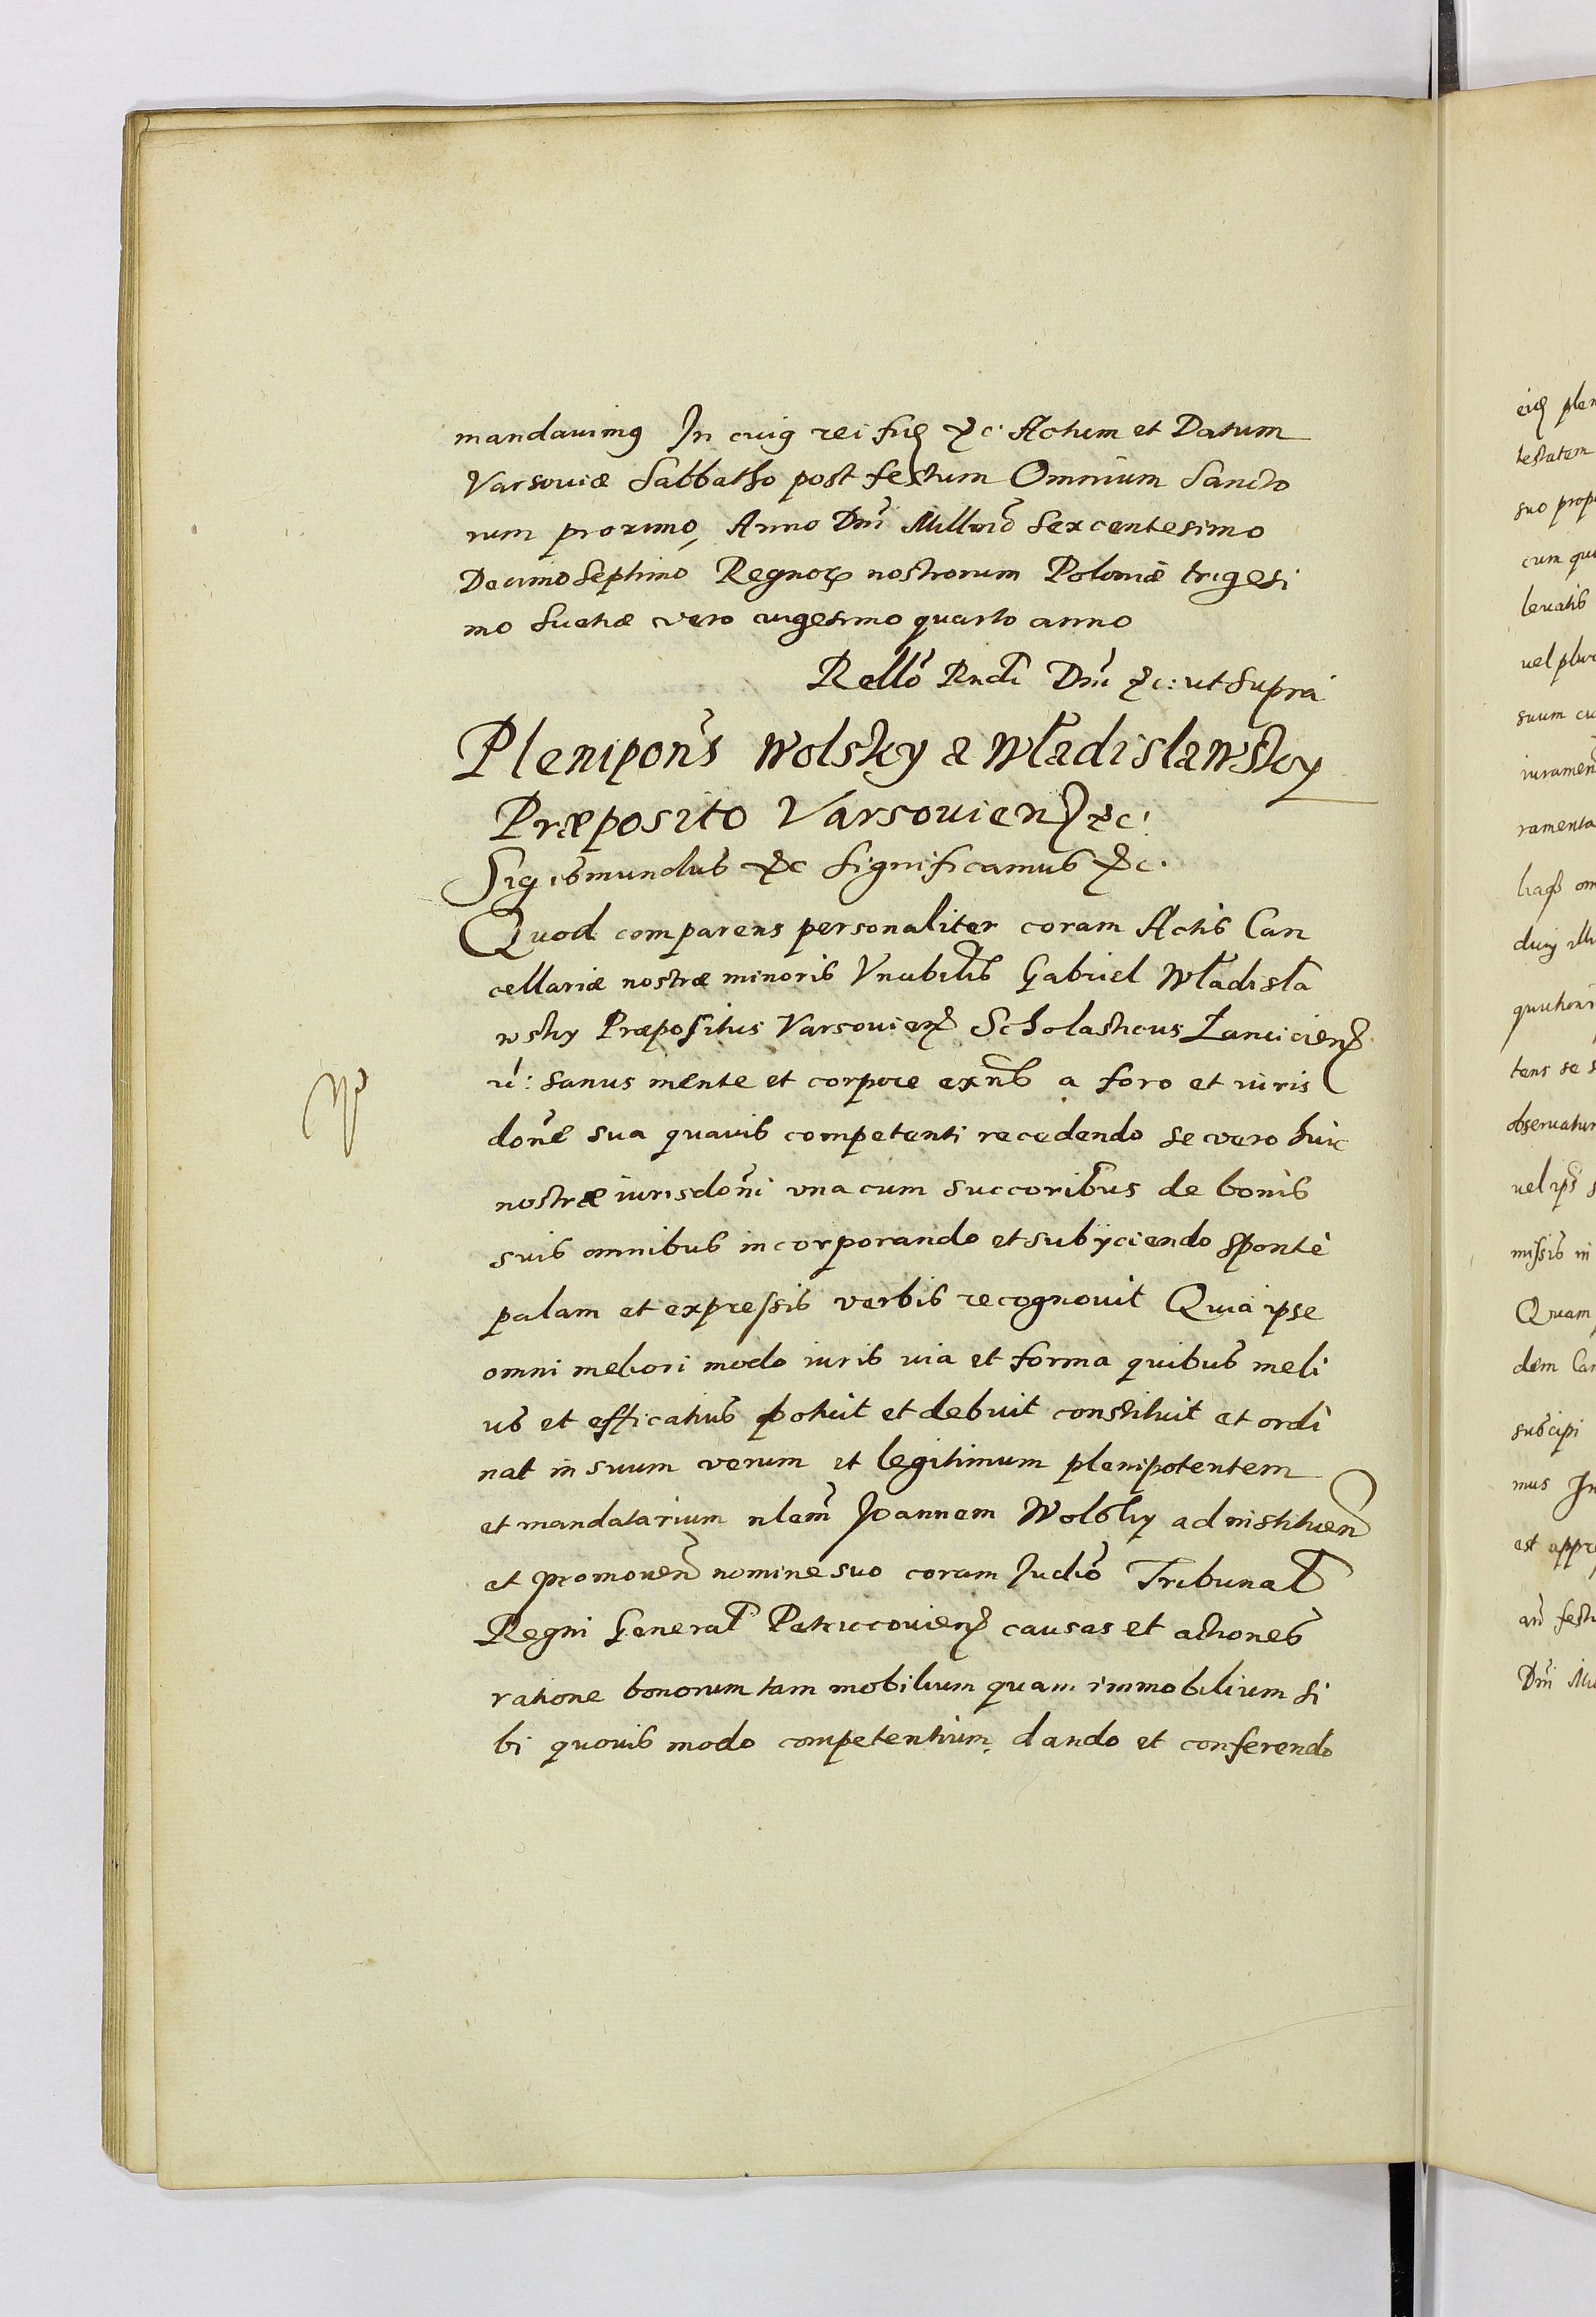 mandauimꝰ In cuiꝰ rei fidꝫ &c. Actum et Datum
Varsouiæ Sabbatho post festum Omnium Sancto
rum proximo, Anno Dnĩ Millmõ Sexcentesimo
Decimo Septimo Regnorꝝ nostrorum Poloniæ trigesi
mo Suetiæ vero vigesimo quarto anno
Rellõ Rndi Dnĩ &c: ut Supra
Plenipoñs Wolsky a Władislawsky
Præposito Varsouienſ &c.
Sigismundus &c Significamus &c.
Quod comparens personaliter coram Actis Can
cellariæ nostræ minoris Vnabilis Gabriel Władisła
wsky Præpositus Varsouienſ Scholasticus Lanicienſ
sanus mente et corpore exñs a foro et iuris
doñe sua quauis competenti recedendo se vero huic
nostræ iurisdoñi vna cum succoribus de bonis
suis omnibus incorporando et subijciendo sponte
palam et expressis verbis recognouit Quia ipse
omni meliori modo iuris uia et forma quibus meli
us et efficatius potuit et debuit constituit et ordi
nat in suum verum et legitimum plenipotentem
et mandatarium nlem̃ Joannem Wolsky ad instituen
et promouen nomine suo coram Judiõ Tribunal
Regni General Petricouienſ causas et actiones
ratione bonorum tam mobilium quam immobilium si
bi quouis modo competentium dando et conferendo
eiꝰ plen
testatem
suo prop
cum qui
leuatis
uel plur
suum cu
iuramen
ramenta
obseruatur
missis in
Quam
dem Can
suscipi
mus In
est appr
añ festu
Dnĩ Mil